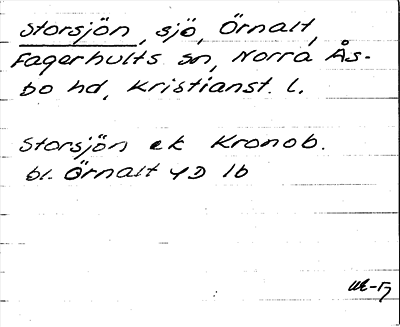 Storsjön, sjö, Örnalt,
Fagerhults sn, Norra Ås-
bo hd, Kristianst. l.
Storsjön ek Kronob.
bl. Örnalt 4D 1b